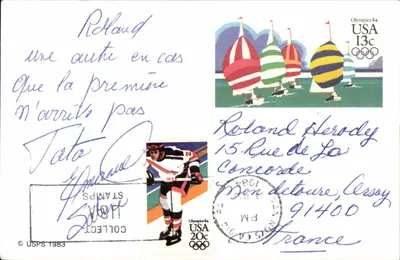 Roland
une autre en cas
que la première
n'arrive pas
Tata
Olympics 84
USA
13c
Roland Herody
15 Rue de La
Concorde
Mondetour, Orsay
91400
France
COLLECT
STAMPS
PM
Olympics 84
USA
20c
© USPS 1983